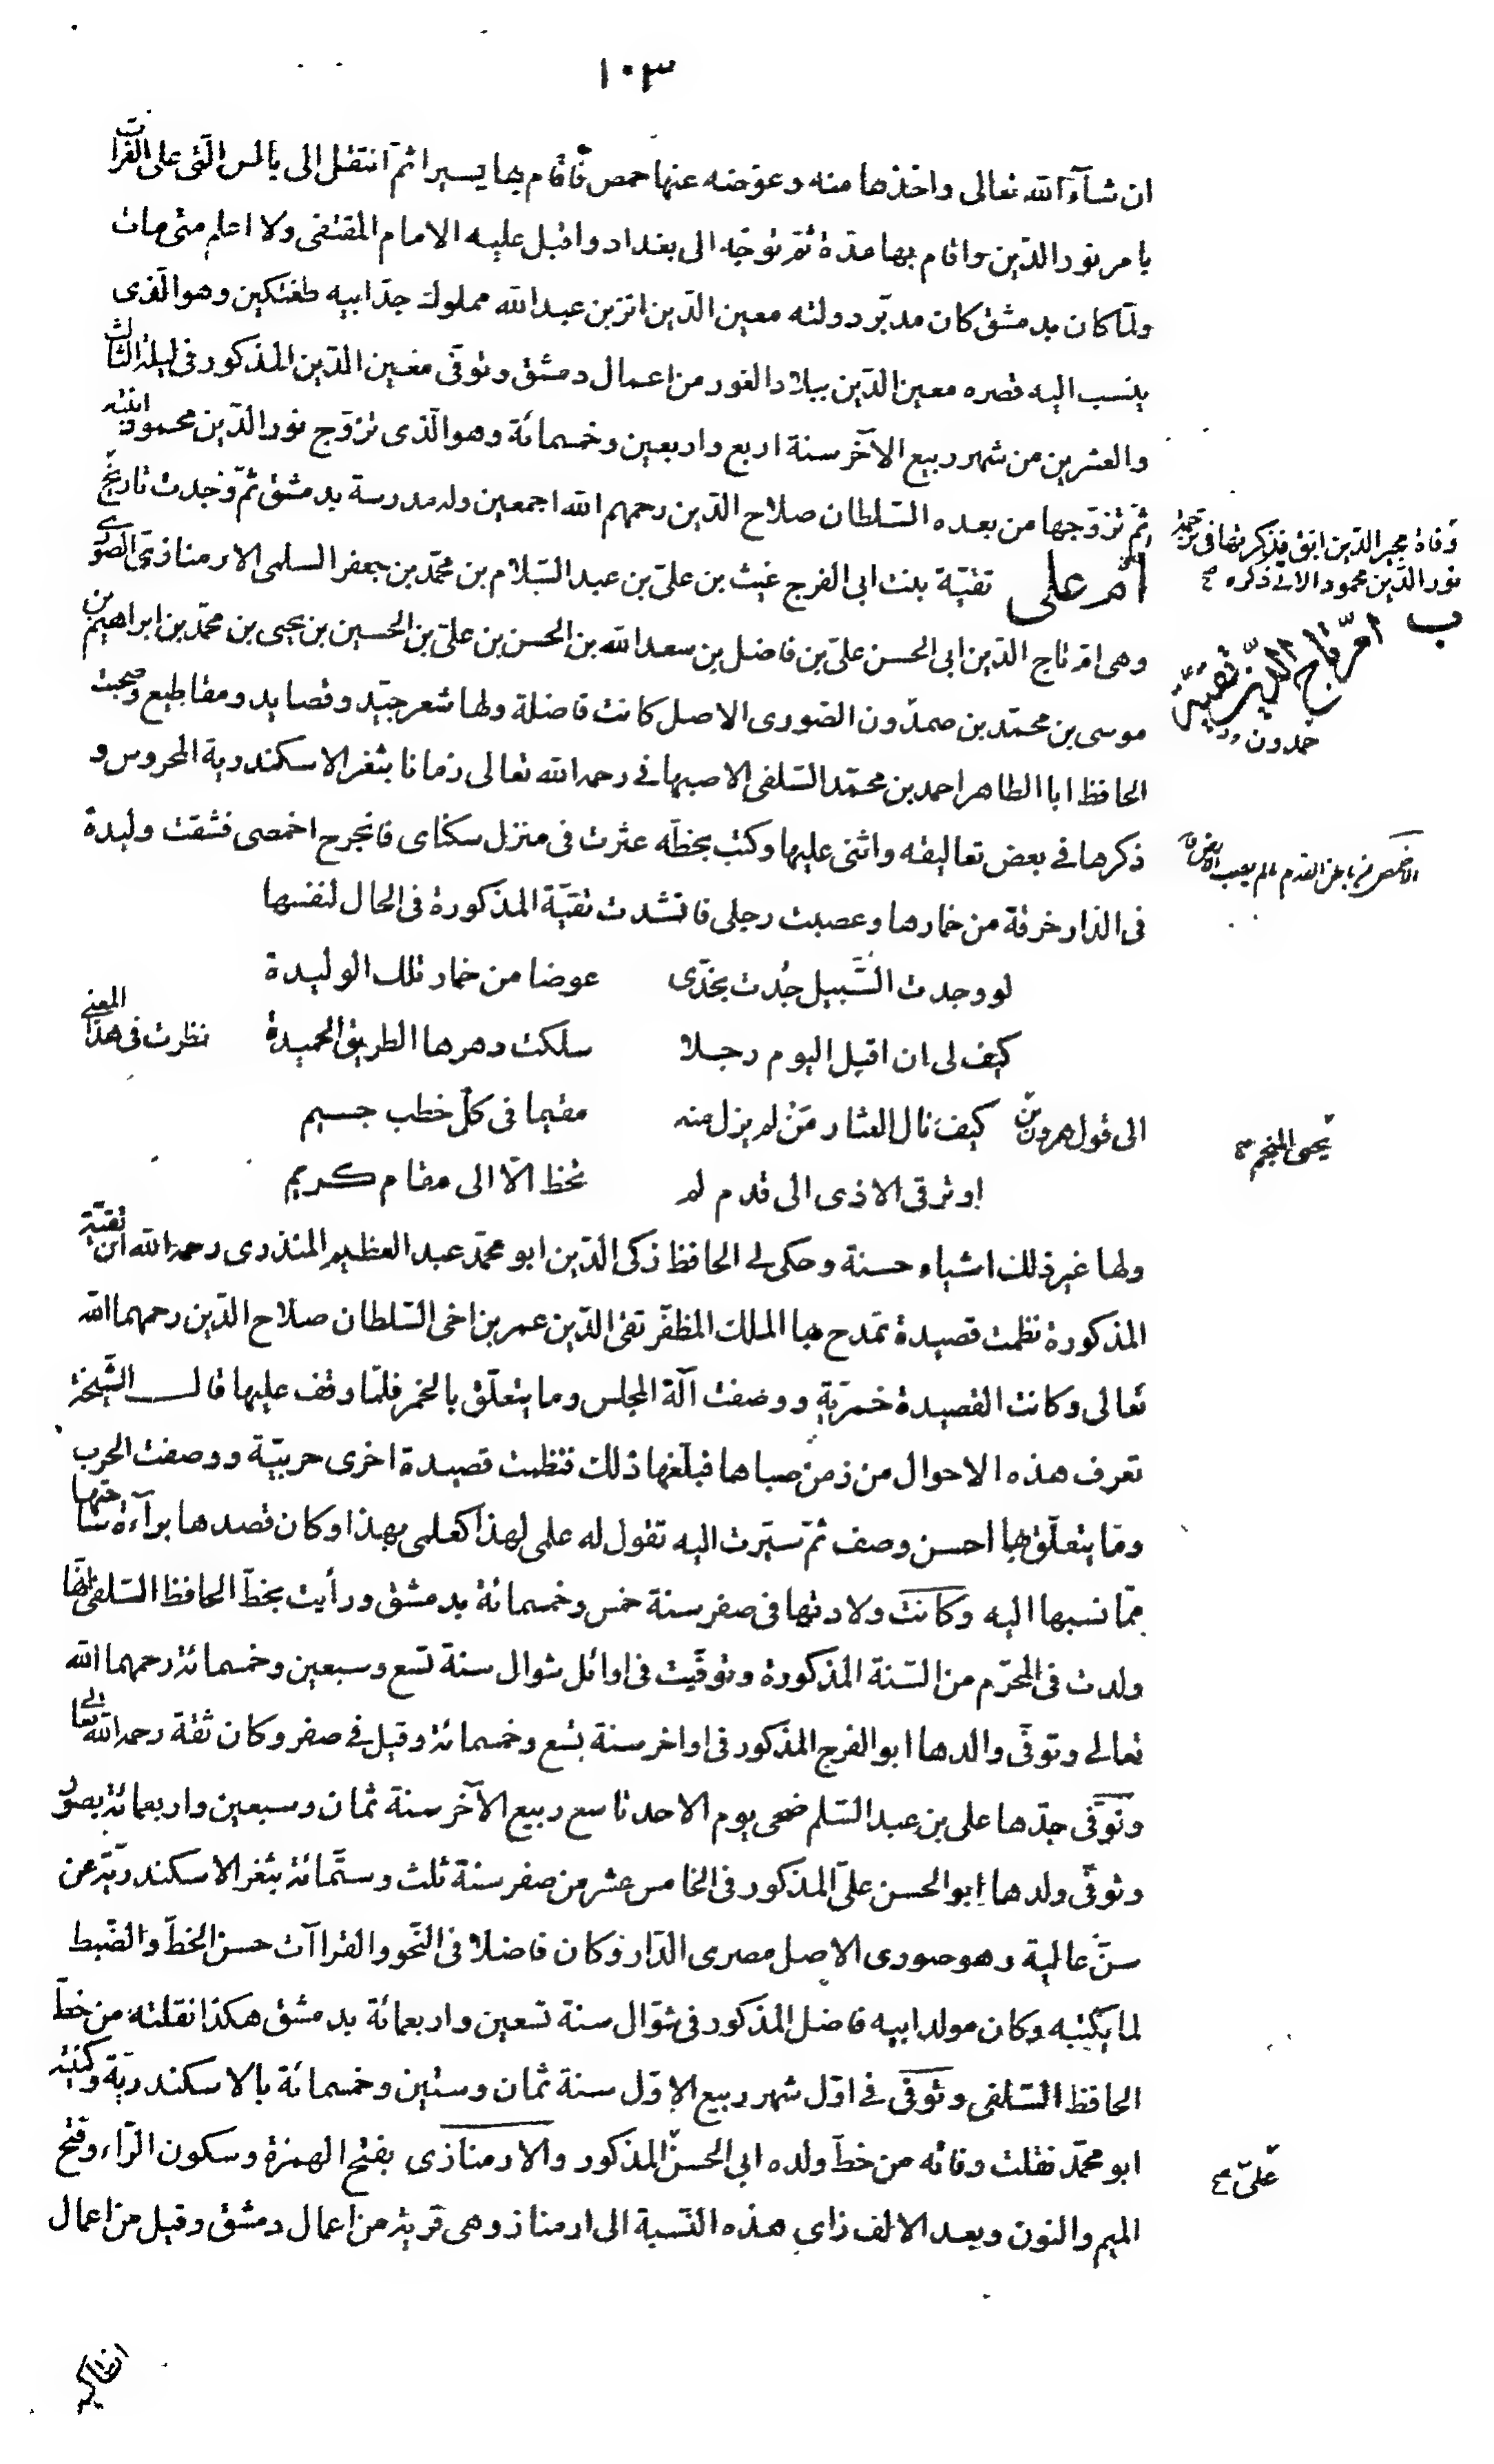 ١٠٣
ان شآء الله تعالى واخذها منه وعوّضه عنها حمص فاقام بها يسيرا ثمّ انتقل الى بالس الّتى على الفرات
بامر نور الدّين واقام بها مدّة ثمّ توجّه الى بغداد واقبل عليه الامام المقتفى ولا اعلم متى مات
ولمّا كان بدمشق كان مدبّر دولته معين الدّين انز بن عبد الله مملوك جدّ ابيه طغتكين وهو الّذى
ينسب اليه قصره معين الدّين ببلاد الغور من اعمال دمشق وتوفّى معين الدّين المذكور فى ليلة الثالث
والعشرين من شهر ربيع الآخر سنة اربع واربعين وخمسمائة وهو الّذى تزوّج نور الدّين محمود ابنته
ثمّ تزوّجها من بعده السّلطان صلاح الدّين رحمهم الله اجمعين وله مدرسة بدمشق ثمّ وجدت تاريخ
وفاة مجير الدّين ابق فذكرتها فى ترجمة
نور الدّين محمود الاتى ذكره صح
امّ على تقيّة بنت ابى الفرج غيث بن علىّ بن عبد السّلام بن محمّد بن جعفر السلمى الارمنازى الصورى
ب امّ تاج الدّين تقيّة
وهى امّ تاج الدّين ابى الحسن علىّ بن فاضل بن سعد الله بن الحسن بن علىّ بن الحسين بن يحيى بن محمّد بن ابراهيم بن
موسى بن محمّد بن صمدون الصّورى الاصل كانت فاضلة ولها شعر جيّد وقصايد ومقاطيع وصحبت
حمدون
الحافظ ابا الطاهر احمد بن محمّد السّلفى الاصبهانى رحمه الله تعالى زمانا بثغر الاسكندرية المحروس و
ذكرها فى بعض تعاليقه واثنى عليها وكتب بخطّه عثرت فى منزل سكناى فانجرح اخمصى فشقّت وليدة
الاخمص من باطن القدم مالم يصب الارض
فى الدّار خرقة من خمارها وعصبت رجلى فانشدت تقيّة المذكورة فى الحال لنفسها
لو وجدت السّبيل جُدت بخدّى عوضا من خمار تلك الوليدة
كيف لى ان اقبل اليوم رجلا سلكت دهرها الطريق الحميدة نظرت فى هذا المعنى
الى قول هرون بن كيف نال العثار مَنْ لم يزل منه مقيما فى كلّ خطب جسيم
يحيى المنجم صح
او ترقى الاذى الى قدم لم تخط الّا الى مقام كريم
ولها غير ذلك اشياء حسنة وحكى لى الحافظ زكى الدّين ابو محمّد عبد العظيم المنذرى رحمه الله انّ تقيّة
المذكورة نظمت قصيدة تمدح بها الملك المظفّر تقى الدّين عمر بن اخى السّلطان صلاح الدّين رحمهما الله
تعالى وكانت القصيدة خمريّة ووصفت آلة المجلس وما يتعلّق بالخمر فلمّا وقف عليها قال الشّيخة
تعرف هذه الاحوال من زمن صباها فبلغها ذلك فنظمت قصيدة اخرى حربيّة ووصفت الحرب
وما يتعلّق بها احسن وصف ثمّ سيّرت اليه تقول له علمى لهذا كعلمى بهذا وكان قصدها برآءة ساحتها
ممّا نسبها اليه وكانت ولادتها فى صفر سنة خمس وخمسمائة بدمشق ورأيت بخطّ الحافظ السّلفى انّها
ولدت فى المحرّم من السّنة المذكورة وتوفّيت فى اوائل شوال سنة تسع وسبعين وخمسمائة رحمهما الله
تعالى وتوفّى والدها ابو الفرج المذكور فى اواخر سنة تسع وخمسمائة وقيل فى صفر وكان ثقة رحمه الله تعالى
وتوفّى جدّها على بن عبد السّلم ضحى يوم الاحد تاسع ربيع الآخر سنة ثمان وسبعين واربعمائة بصور
وتوفّى ولدها ابو الحسن علىّ المذكور فى الخامس عشر من صفر سنة ثلث وستّمائة بثغر الاسكندريّة عن
سنّ عالية وهو صورى الاصل مصرى الدّار وكان فاضلا فى النّحو والقراآت حسن الخطّ والضّبط
لما يكتبه وكان مولد ابيه فاضل المذكور فى شوّال سنة تسعين واربعمائة بدمشق هكذا نقلته من خطّ
الحافظ السّلفى وتوفّى فى اوّل شهر ربيع الاوّل سنة ثمان وستين وخمسمائة بالاسكندريّة وكنيته
ابو محمّد نقلت وفاته من خطّ ولده ابى الحسن المذكور والارمنازى بفتح الهمزة وسكون الرّاء وفتح
علىّ صح
الميم والنون وبعد الالف زاى هذه النّسبة الى ارمناز وهى قرية من اعمال دمشق وقيل من اعمال
انطاكية